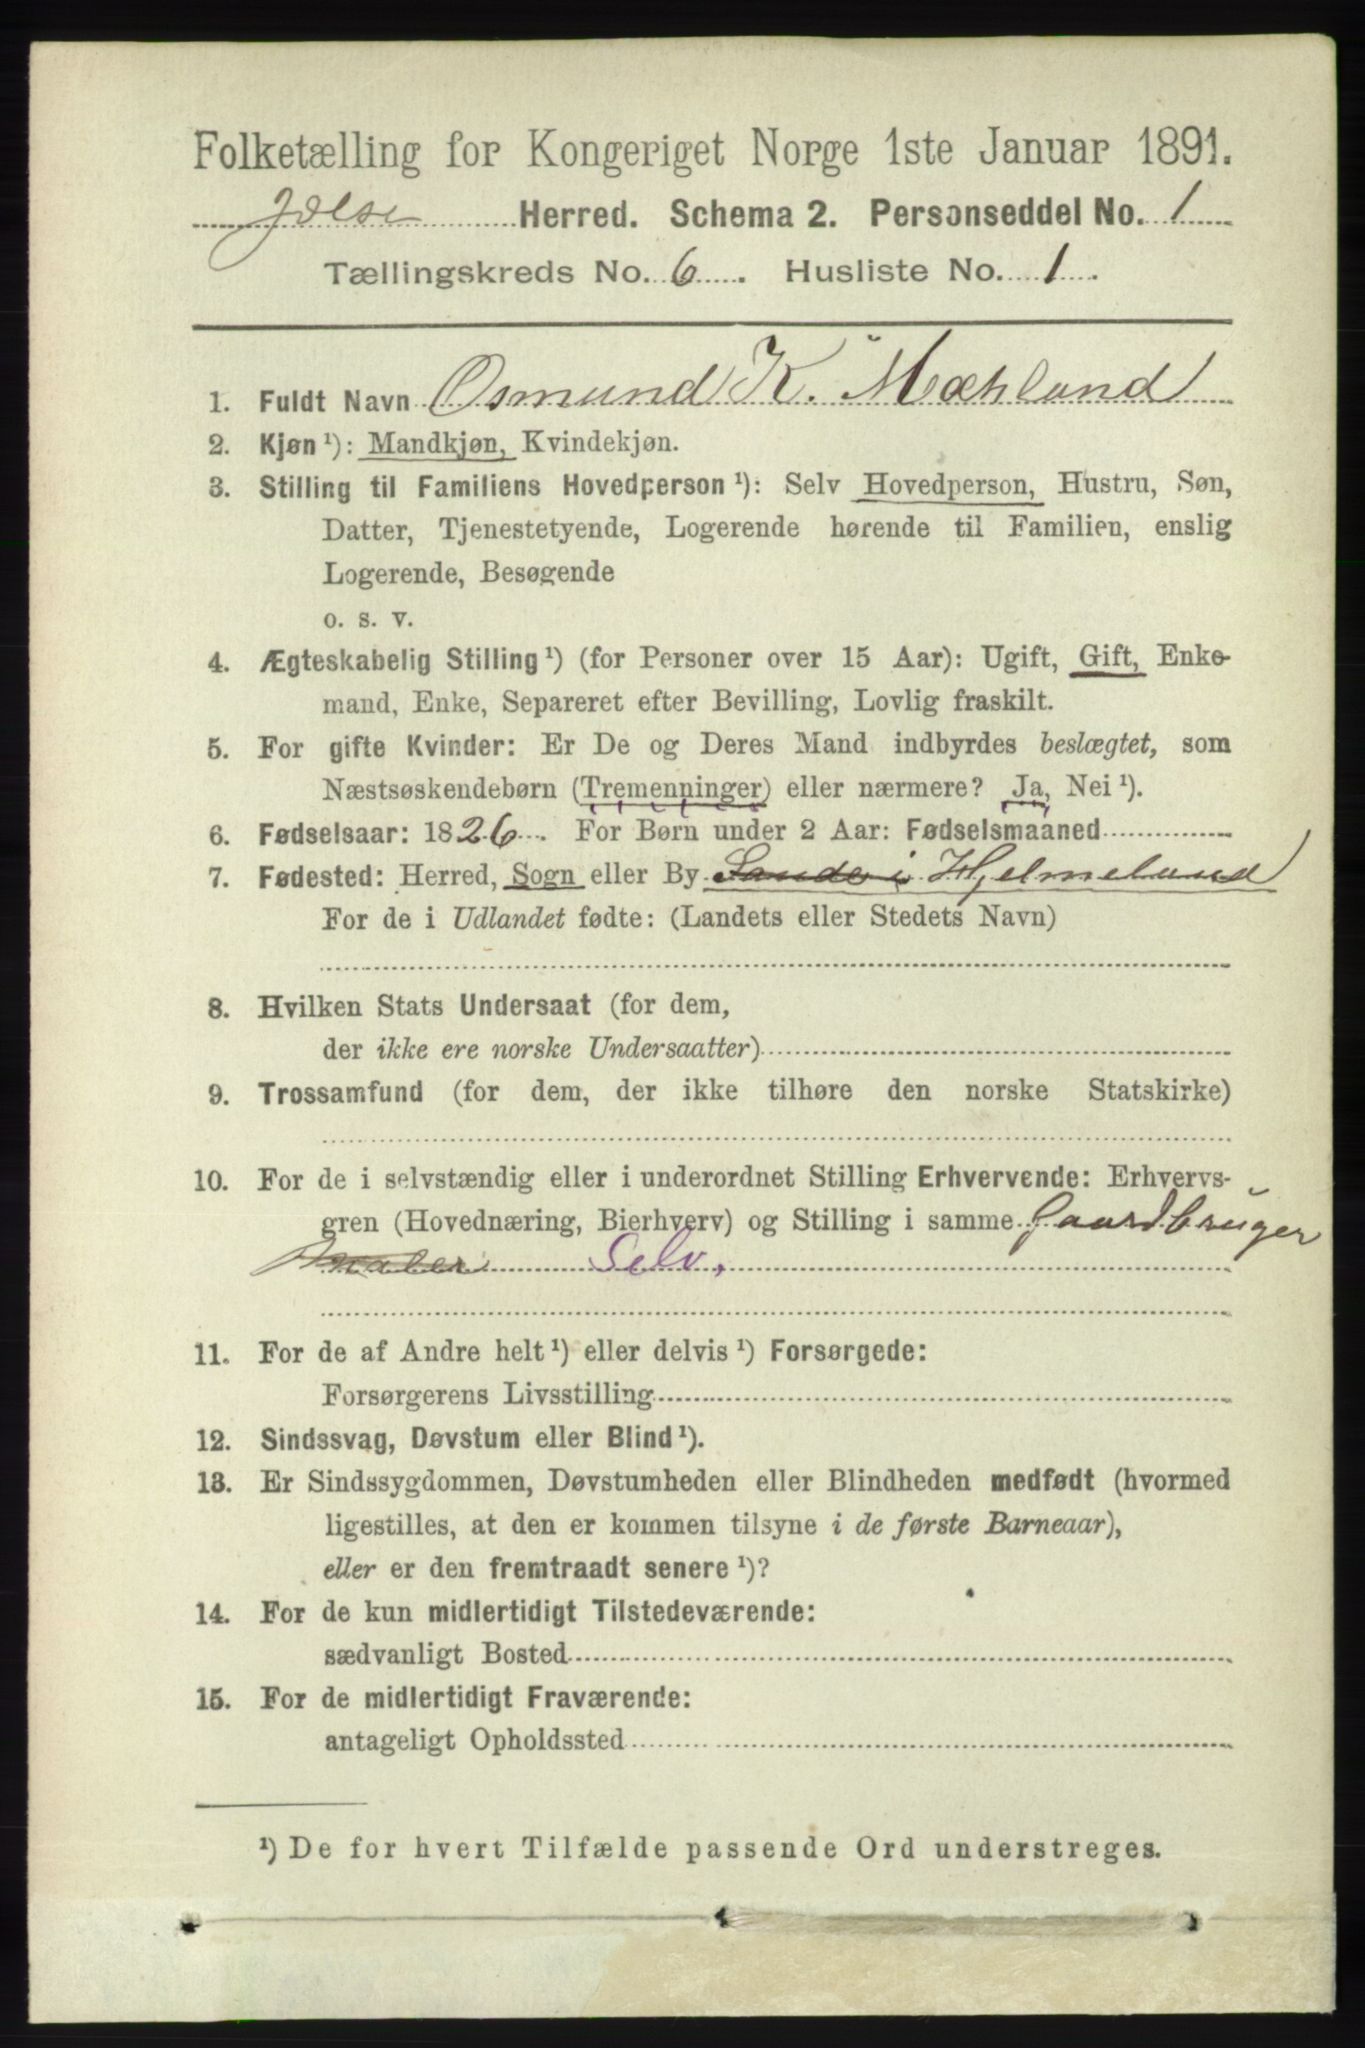 Folketælling for Kongeriget Norge 1ste Januar 1891.
Jelse Herred. Schema 2. Personseddel No. 1
Tællingskreds No. 6. Husliste No. 1.
1. Fuldt Navn Osmund K. Mæhlund
2. Kjøn ¹): Mandkjøn, Kvindekjøn.
3. Stilling til Familiens Hovedperson ¹): Selv Hovedperson, Hustru, Søn,
Datter, Tjenestetyende, Logerende hørende til Familien, enslig
Logerende, Besøgende
o. s. v.
4. Ægteskabelig Stilling ¹) (for Personer over 15 Aar): Ugift, Gift, Enke-
mand, Enke, Separeret efter Bevilling, Lovlig fraskilt.
5. For gifte Kvinder: Er De og Deres Mand indbyrdes beslægtet, som
Næstsøskendebørn (Tremenninger) eller nærmere? Ja, Nei ¹).
6. Fødselsaar: 1826. For Børn under 2 Aar: Fødselsmaaned
7. Fødested: Herred, Sogn eller By Sande i Hjelmeland
For de i Udlandet fødte: (Landets eller Stedets Navn)
8. Hvilken Stats Undersaat (for dem,
der ikke ere norske Undersaatter)
9. Trossamfund (for dem, der ikke tilhøre den norske Statskirke)
10. For de i selvstændig eller i underordnet Stilling Erhvervende: Erhvervs-
gren (Hovednæring, Bierhverv) og Stilling i samme Gaardbruger
Maler Selv.
11. For de af Andre helt ¹) eller delvis ¹) Forsørgede:
Forsørgerens Livsstilling
12. Sindssvag, Døvstum eller Blind ¹).
13. Er Sindssygdommen, Døvstumheden eller Blindheden medfødt (hvormed
ligestilles, at den er kommen tilsyne i de første Barneaar),
eller er den fremtraadt senere ¹)?
14. For de kun midlertidigt Tilstedeværende:
sædvanligt Bosted
15. For de midlertidigt Fraværende:
antageligt Opholdssted
¹) De for hvert Tilfælde passende Ord understreges.